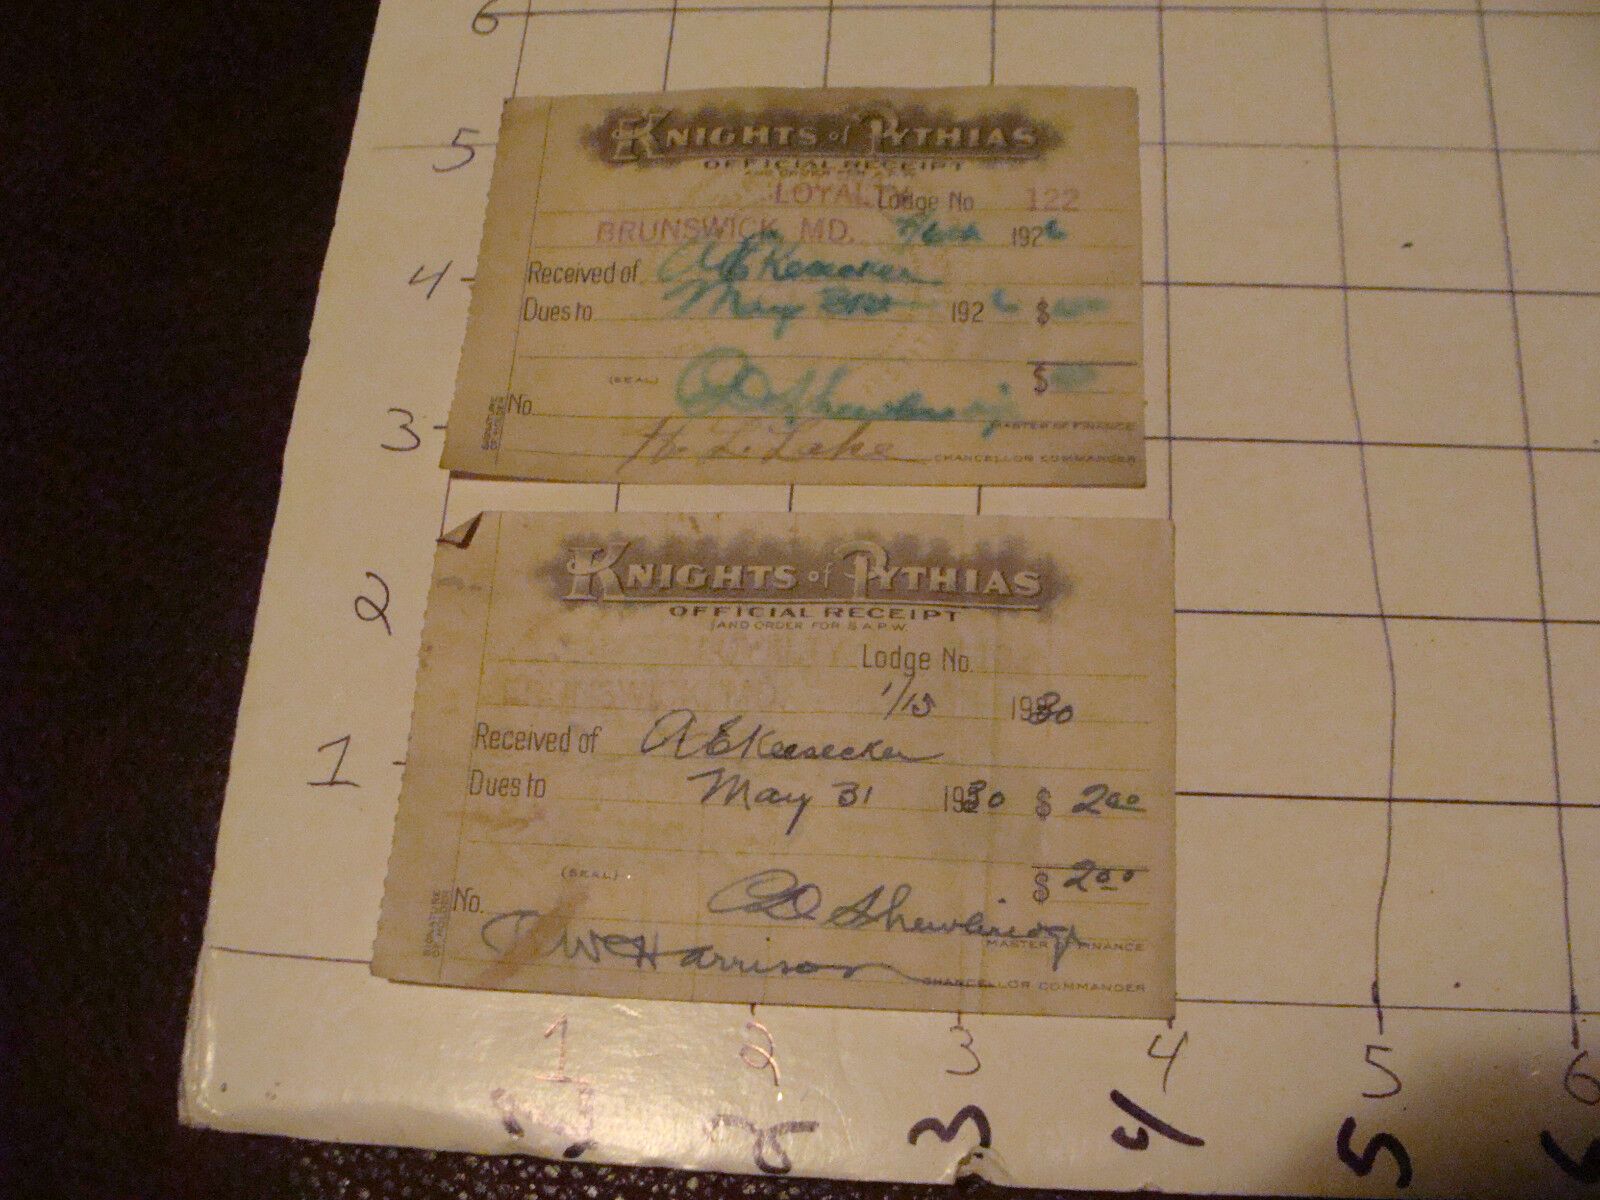 6
KNIGHTS of PYTHIAS
OFFICIAL RECEIPT
5
LOYALTY Lodge No 122
BRUNSWICK, MD. 1926
4
Received of A E Keesecker
Dues to May 31st 1926 $
$
(SEAL)
No.
3
SIGNATURE OF HOLDER
MASTER OF FINANCE
H. L. Lake CHANCELLOR COMMANDER
KNIGHTS of PYTHIAS
OFFICIAL RECEIPT
AND ORDER FOR S.A.P.W.
2
Lodge No.
BRUNSWICK, MD. 1/13 1930
1
Received of A E Keesecker
Dues to May 31 1930 $ 2.00
$ 2.00
(SEAL)
No.
SIGNATURE OF HOLDER
MASTER OF FINANCE
Harrison CHANCELLOR COMMANDER
1 2 3 4 5 6
1 2 3 4 5 6